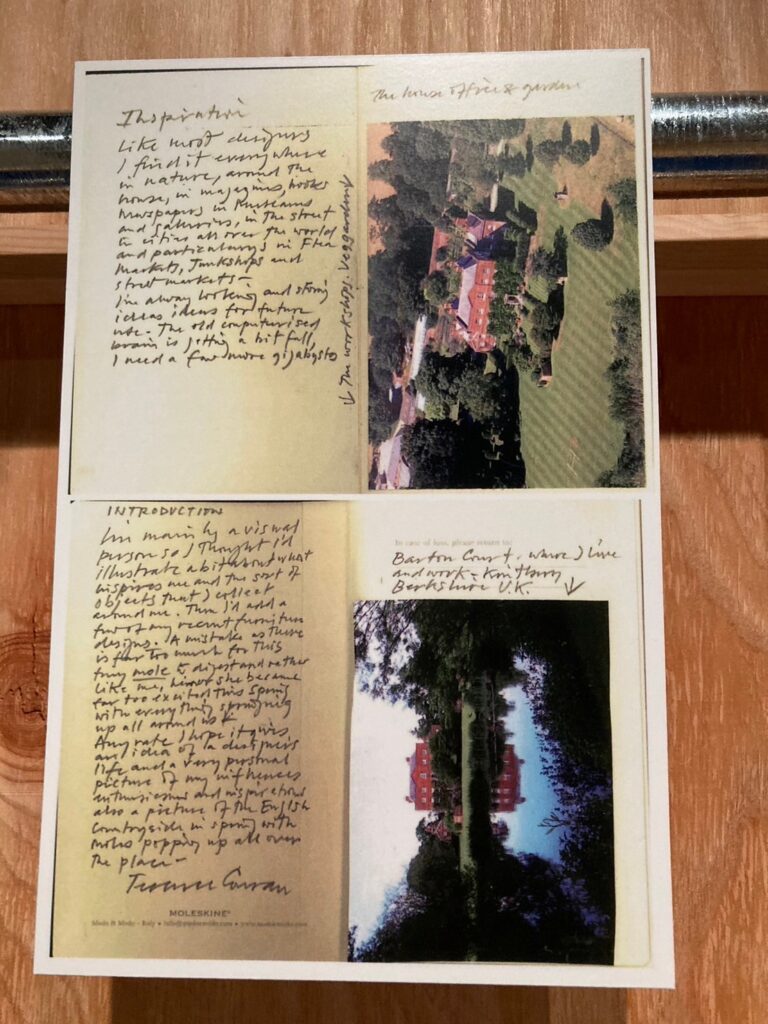 Inspiration
Like most designers
I find it everywhere
in nature, around the
house, in magazines, books
Newspapers in Museums
and galleries, in the street
in cities all over the world
and particularly in Flea
Markets, Junkshops and
street markets –
I'm always looking and storing
ideas ideas for future
use. The old computurised
brain is getting a bit full,
I need a few more gigabysts
← The workshops. Veg garden ↓
The house office & garden
INTRODUCTION
I'm mainly a visual
person so I thought I'd
illustrate a bit about what
inspires me and the sort of
objects that I collect
around me. Then I'd add a
few of my recent furniture
designs. (A mistake as there
is far too much for this
tiny mole to digest and rather
like me, she became
far too excited this Spring
with everything springing
up all around us
Any rate I hope it gives
an idea of a designer's
life and a very personal
picture of my influences
enthusiasms and inspirations
also a picture of the English
Countryside in spring with
moles popping up all over
the place –
Terence Conran
MOLESKINE®
Modo & Modo – Italy • info@modoemodo.com • www.modoemodo.com
In case of loss, please return to:
Barton Court, where I live
and work – Kintbury
Berkshire U.K. ↓